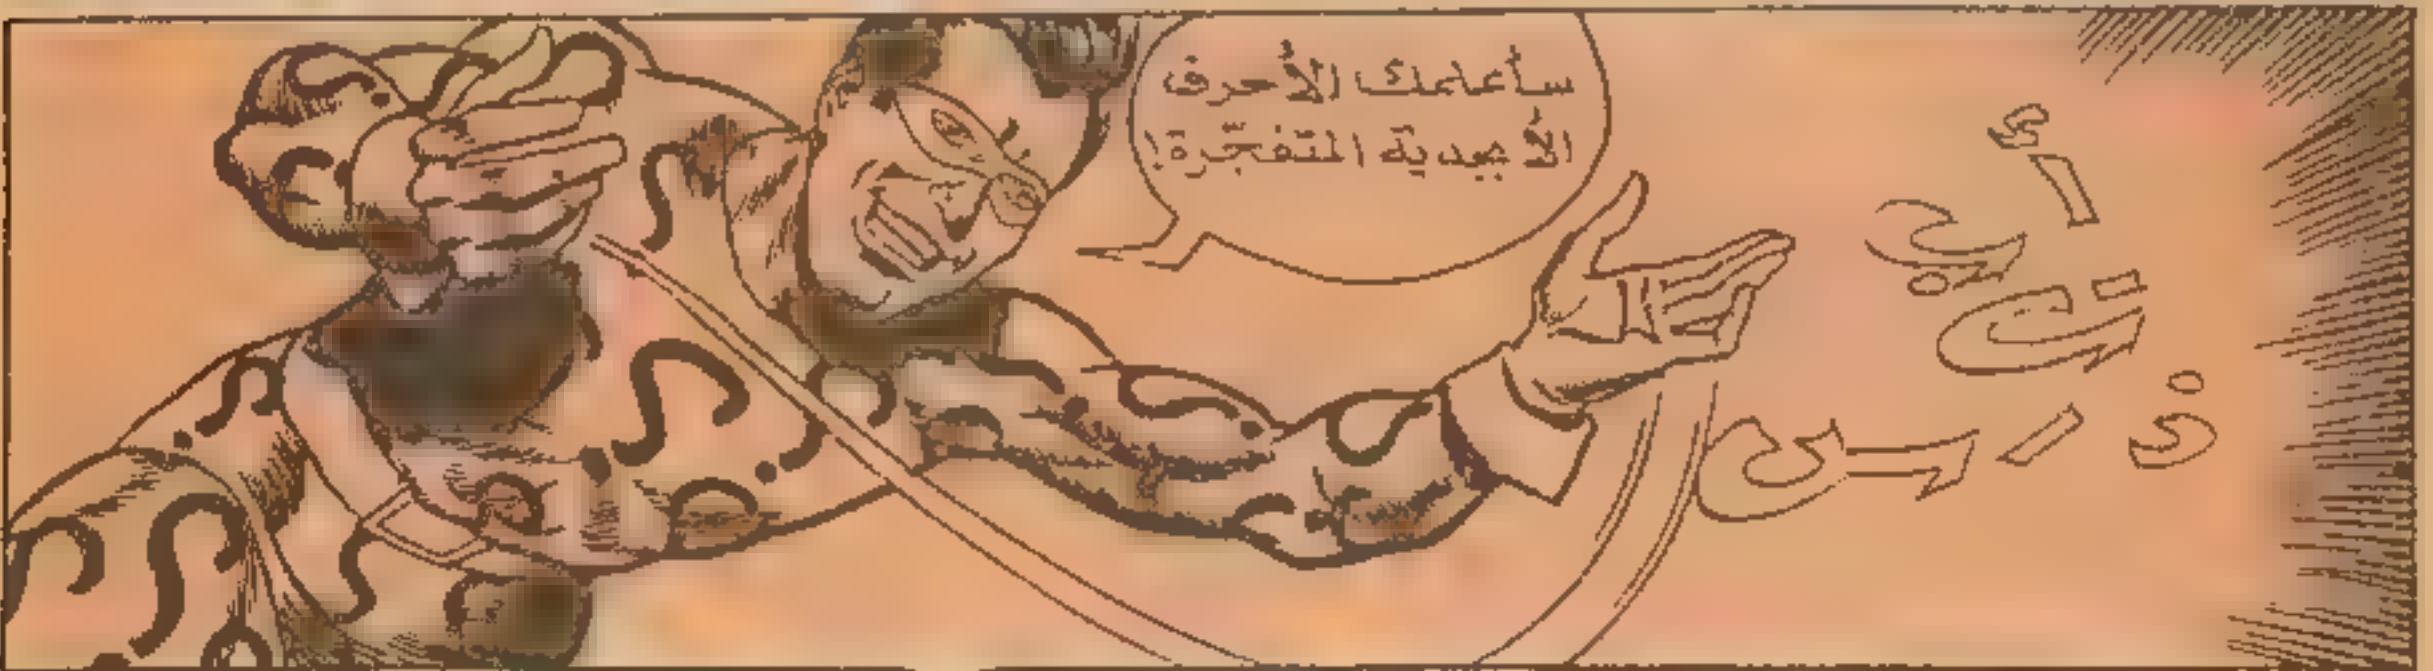 سأعلمك الأحرف
الأبجدية المتفجّرة!
أ
ب
ت
ن
ر
س